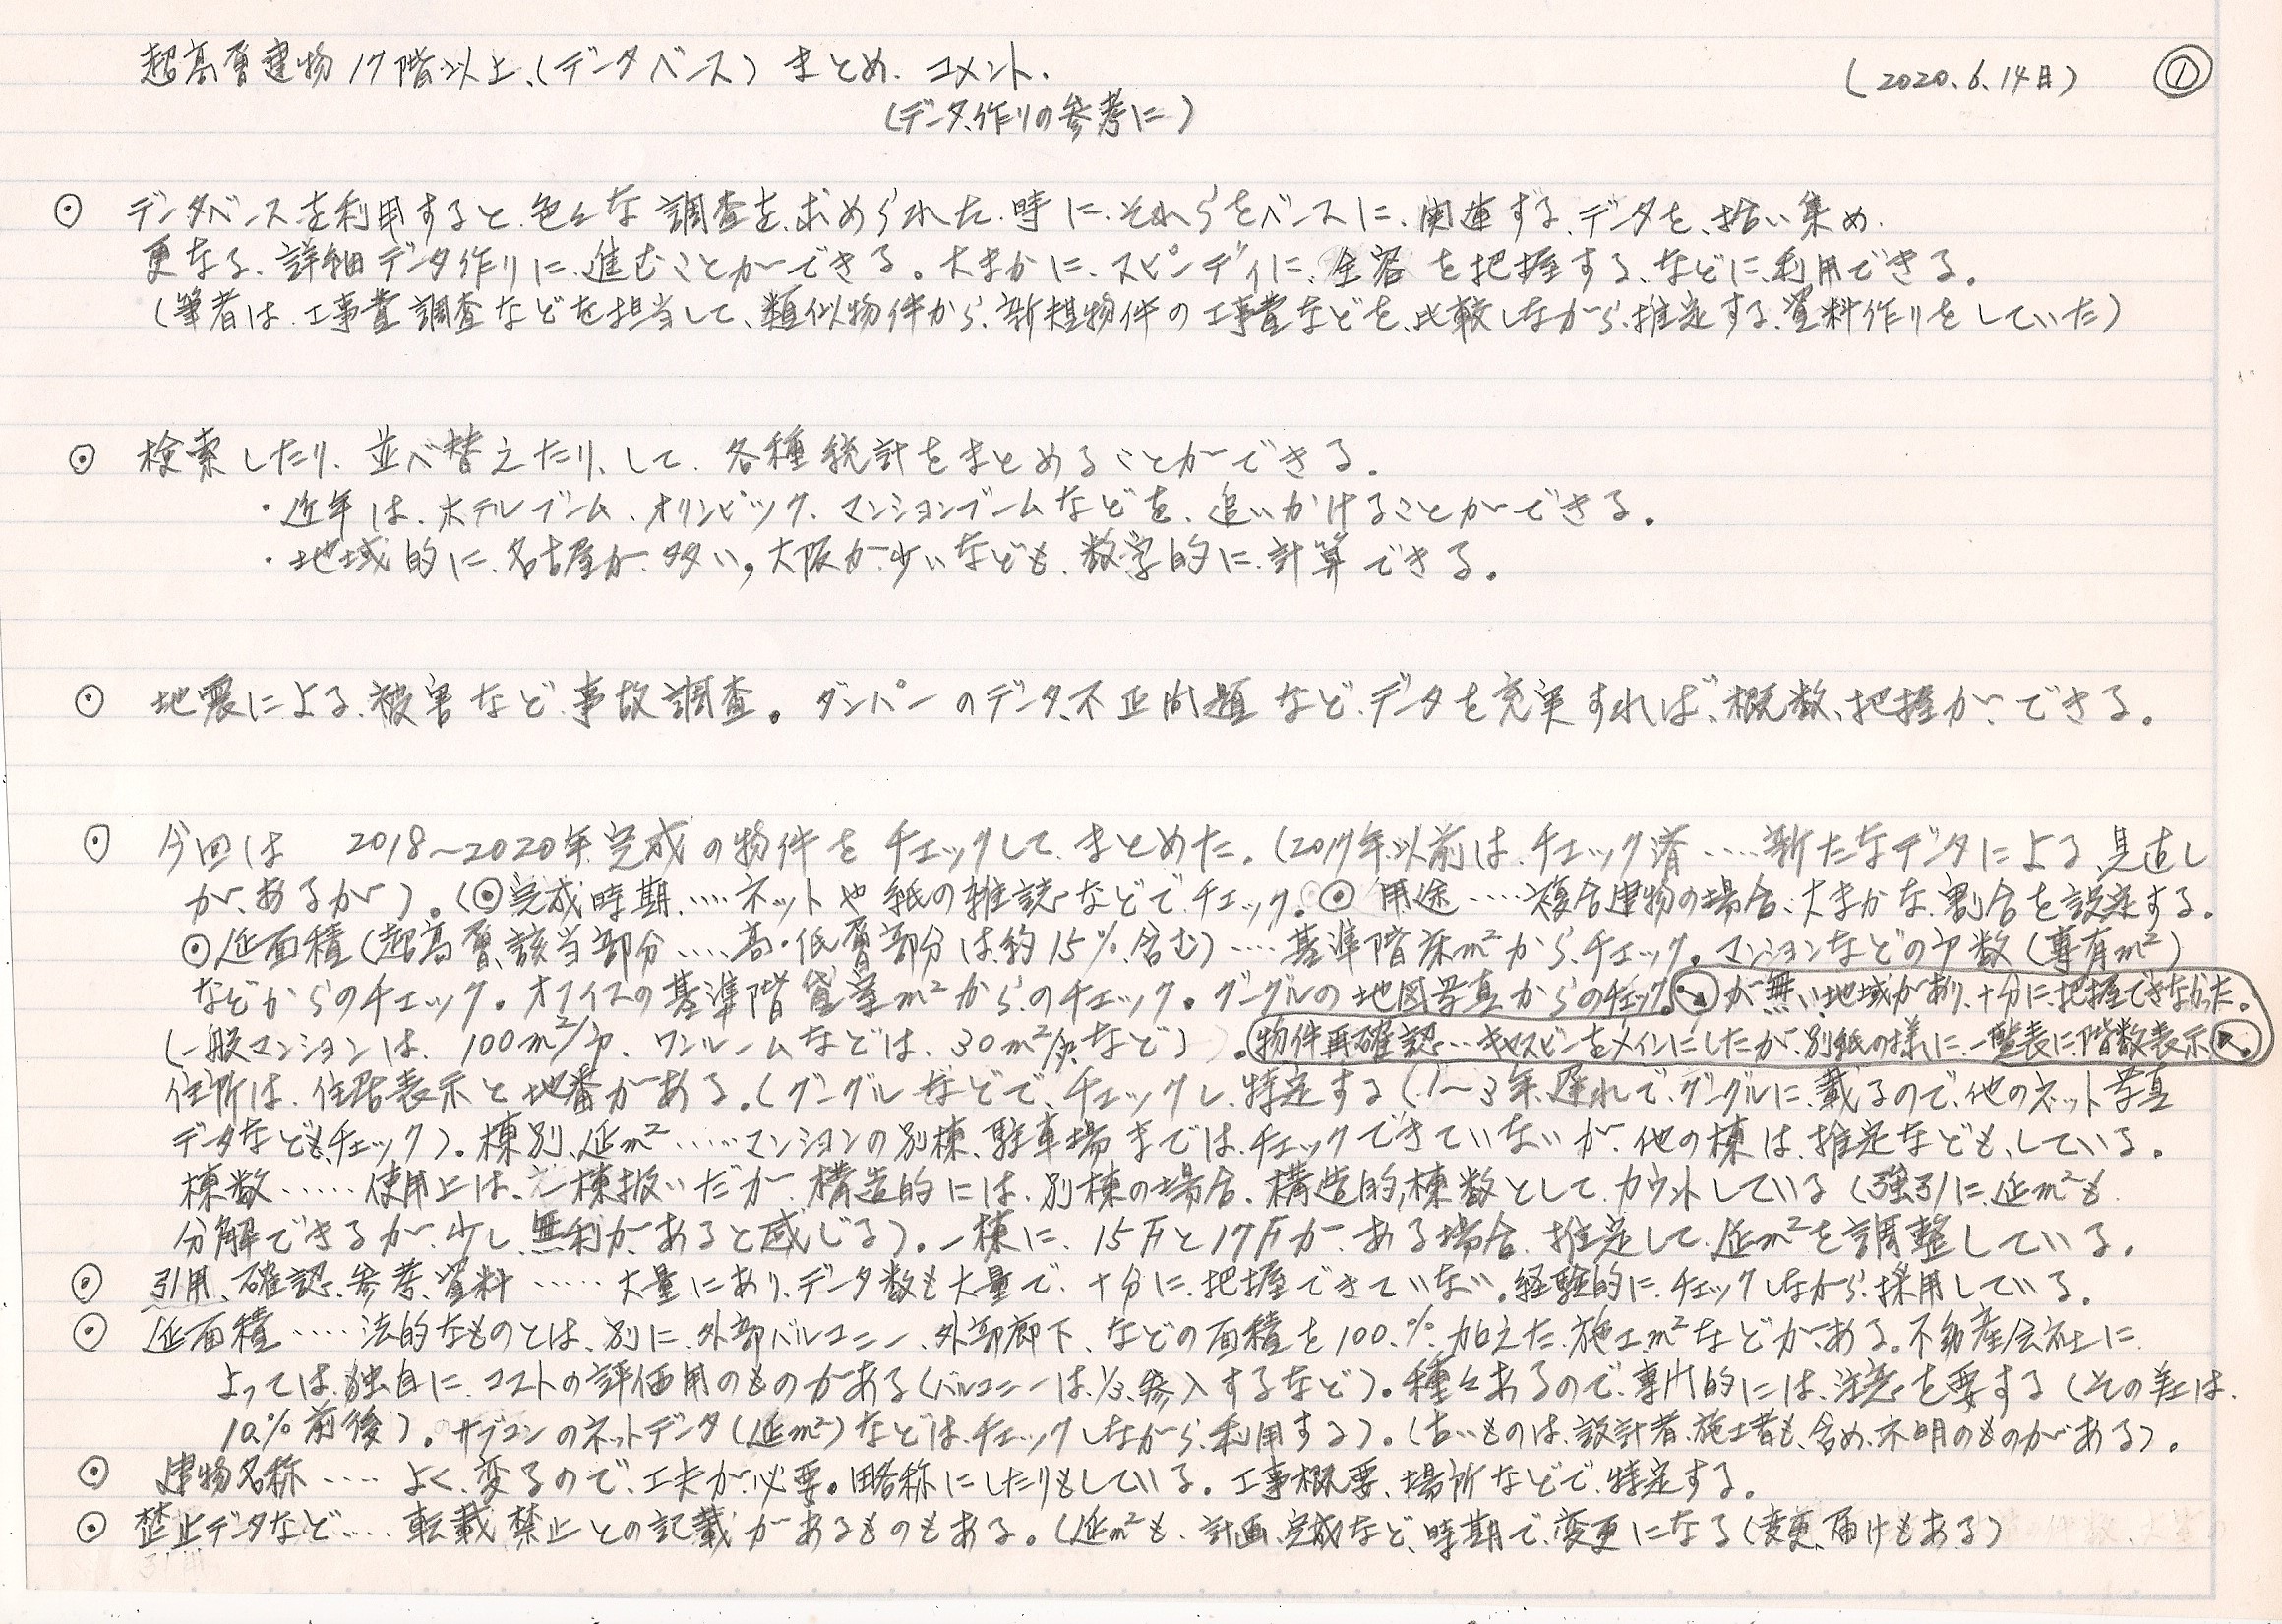 超高層建物17階以上、(データベース) まとめ、コメント.
(2020.6.14日) ①
(データ作りの参考に)
⊙ データベースを利用すると、色々な調査を、求められた、時に、それらをベースに、関連する、データを、拾い集め、
更なる、詳細データ作りに、進むことができる。大まかに、スピーディに、全容を把握する、などに、利用できる。
(筆者は、工事費調査などを担当して、類似物件から、新規物件の工事費などを、比較しながら、推定する、資料作りをしていた)
⊙ 検索したり、並べ替えたり、して、各種統計をまとめることができる.
・近年は、ホテルブーム、オリンピック、マンションブームなどを、追いかけることができる.
・地域的に、名古屋が、多い，大阪が、少いなども、数字的に、計算できる.
⊙ 地震による、被害など、事故調査。ダンパーのデータ不正問題など、データを充実すれば、概数、把握が、できる.
⊙ 今回は 2018〜2020年完成の物件をチェックして、まとめた.(2017年以前は、チェック済....新たなデータによる、見直し
が、あるが)。(⊙完成時期....ネットや紙の雑誌などでチェック。⊙ 用途....複合建物の場合、大まかな、割合を設定する.
⊙延面積(超高層、該当部分....高・低層部分は約15%、含む)....基準階床m²から、チェック。マンションなどの戸数(専有m²)
などからのチェック。オフィスの基準階貸室m²からのチェック。グーグルの地図写真からのチェック。↘が無い地域があり、十分に、把握できなかった.
(一般マンションは、100m²/戸、ワンルームなどは、30m²/戸、など)。物件再確認...キャスビーをメインにしたが、別紙の様に、一覧表に階数表示↖.
住所は、住居表示と地番がある.(グーグルなどで、チェックし、特定する(1〜3年、遅れで、グーグルに、載るので、他のネット写真
データなども、チェック)。棟別、延m².....マンションの別棟、駐車場までは、チェックできていないが、他の棟は、推定なども、している.
棟数.....使用上は、一棟扱いだが、構造的には、別棟の場合、構造的棟数として、カウントしている(強引に、延m²も
分解できるが、少し、無理があると感じる)。一棟に、15万と17万が、ある場合、推定して、延m²を調整している.
⊙ 引用、確認、参考、資料.....大量にあり、データ数も大量で、十分に、把握できていない。経験的に、チェックしながら、採用している.
⊙ 延面積....法的なものとは、別に、外部バルコニー、外部廊下、などの面積を100.%加えた、施工m²などがある。不動産会社に
よっては、独自に、コストの評価用のものがある(バルコニーは、1/3、参入するなど)。種々あるので、専門的には、注意を要する(その差は、
10.%前後)。サブコンのネットデータ(延m²)などは、チェックしながら、利用する)。(古いものは、設計者、施工者も、含め、不明のものがある).
⊙ 建物名称....よく、変るので、工夫が、必要。略称にしたりもしている。工事概要、場所などで、特定する.
⊙ 禁止データなど....転載、禁止との記載があるものもある。(延m²も、計画、完成など、時期で、変更になる(変更、届けもある)